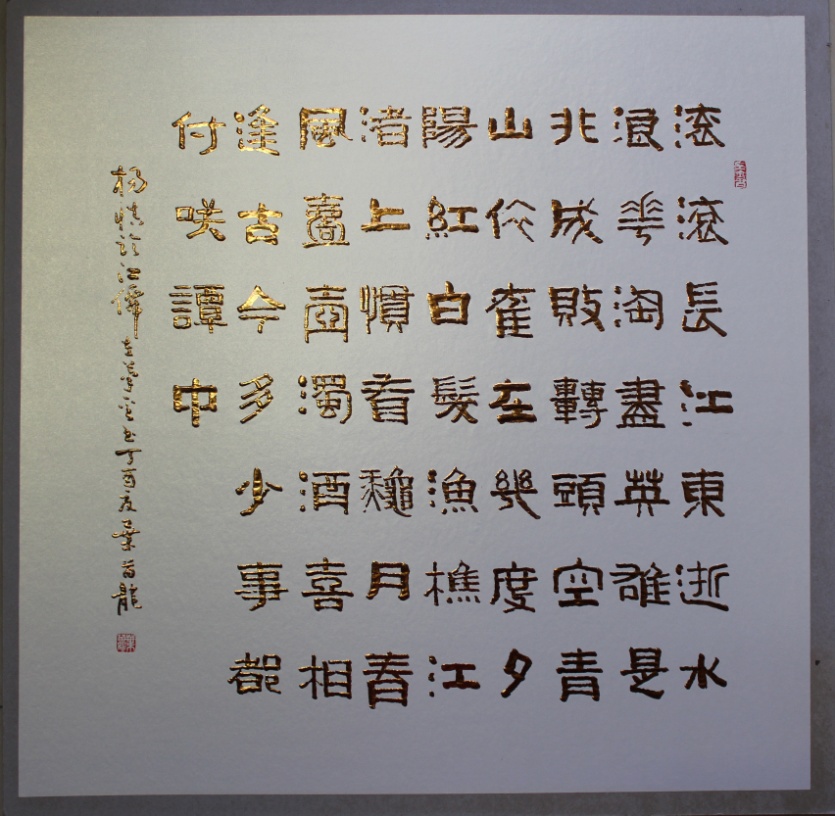 滾滾長江東逝水
浪華淘盡英雄是
非成敗轉頭空青
山依舊在幾度夕
陽紅白髮漁樵江
渚上慣看龝月春
風壹壺濁酒喜相
逢古今多少事都
付咲譚中
楊慎臨江僊 書丁酉夏葉首龍